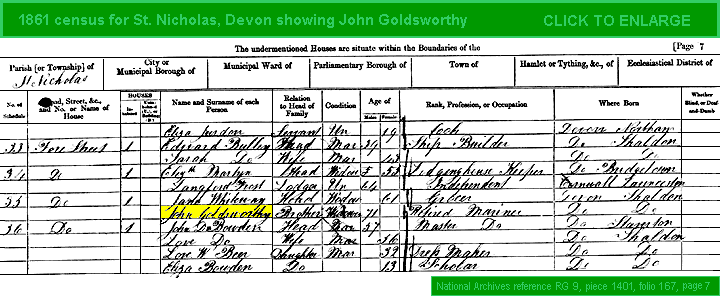 1861 census for St. Nicholas, Devon showing John Goldsworthy CLICK TO ENLARGE
The undermentioned Houses are situate within the Boundaries of the [Page 7
Parish [or Township] of City or Municipal Borough of Municipal Ward of Parliamentary Borough of Town of Hamlet or Tything, &c., of Ecclesiastical District of
St Nicholas
No. of Schedule Road, Street, &c., and No. or Name of House HOUSES Name and Surname of each Person Relation to Head of Family Condition Age of Males Females Rank, Profession, or Occupation Where Born Whether Blind, or Deaf-and-Dumb
Eliza Servant Un 19 Cook Devon
33 Fore Street 1 Edward Head Mar 39 Ship Builder Do Shaldon
Sarah Do Wife Mar 43 Do Do
34 Do 1 Martyn Head Widow 53 Lodginghouse Keeper Do
Langford Lodger Un 64 Independent Cornwall Launceston
35 Do 1 Jane Whiteway Head Widow 61 Grocer Devon Shaldon
John Goldsworthy Brother Widower 71 Retired Mariner Do Do
36 Do 1 John Do Bowden Head Mar 37 Master Do Do
Love Do Wife Mar 36 Do Shaldon
Love W Daughter Mar Dress Maker Do Do
Eliza Bowden Do 13 Scholar Do Do
National Archives reference RG 9, piece 1401, folio 167, page 7